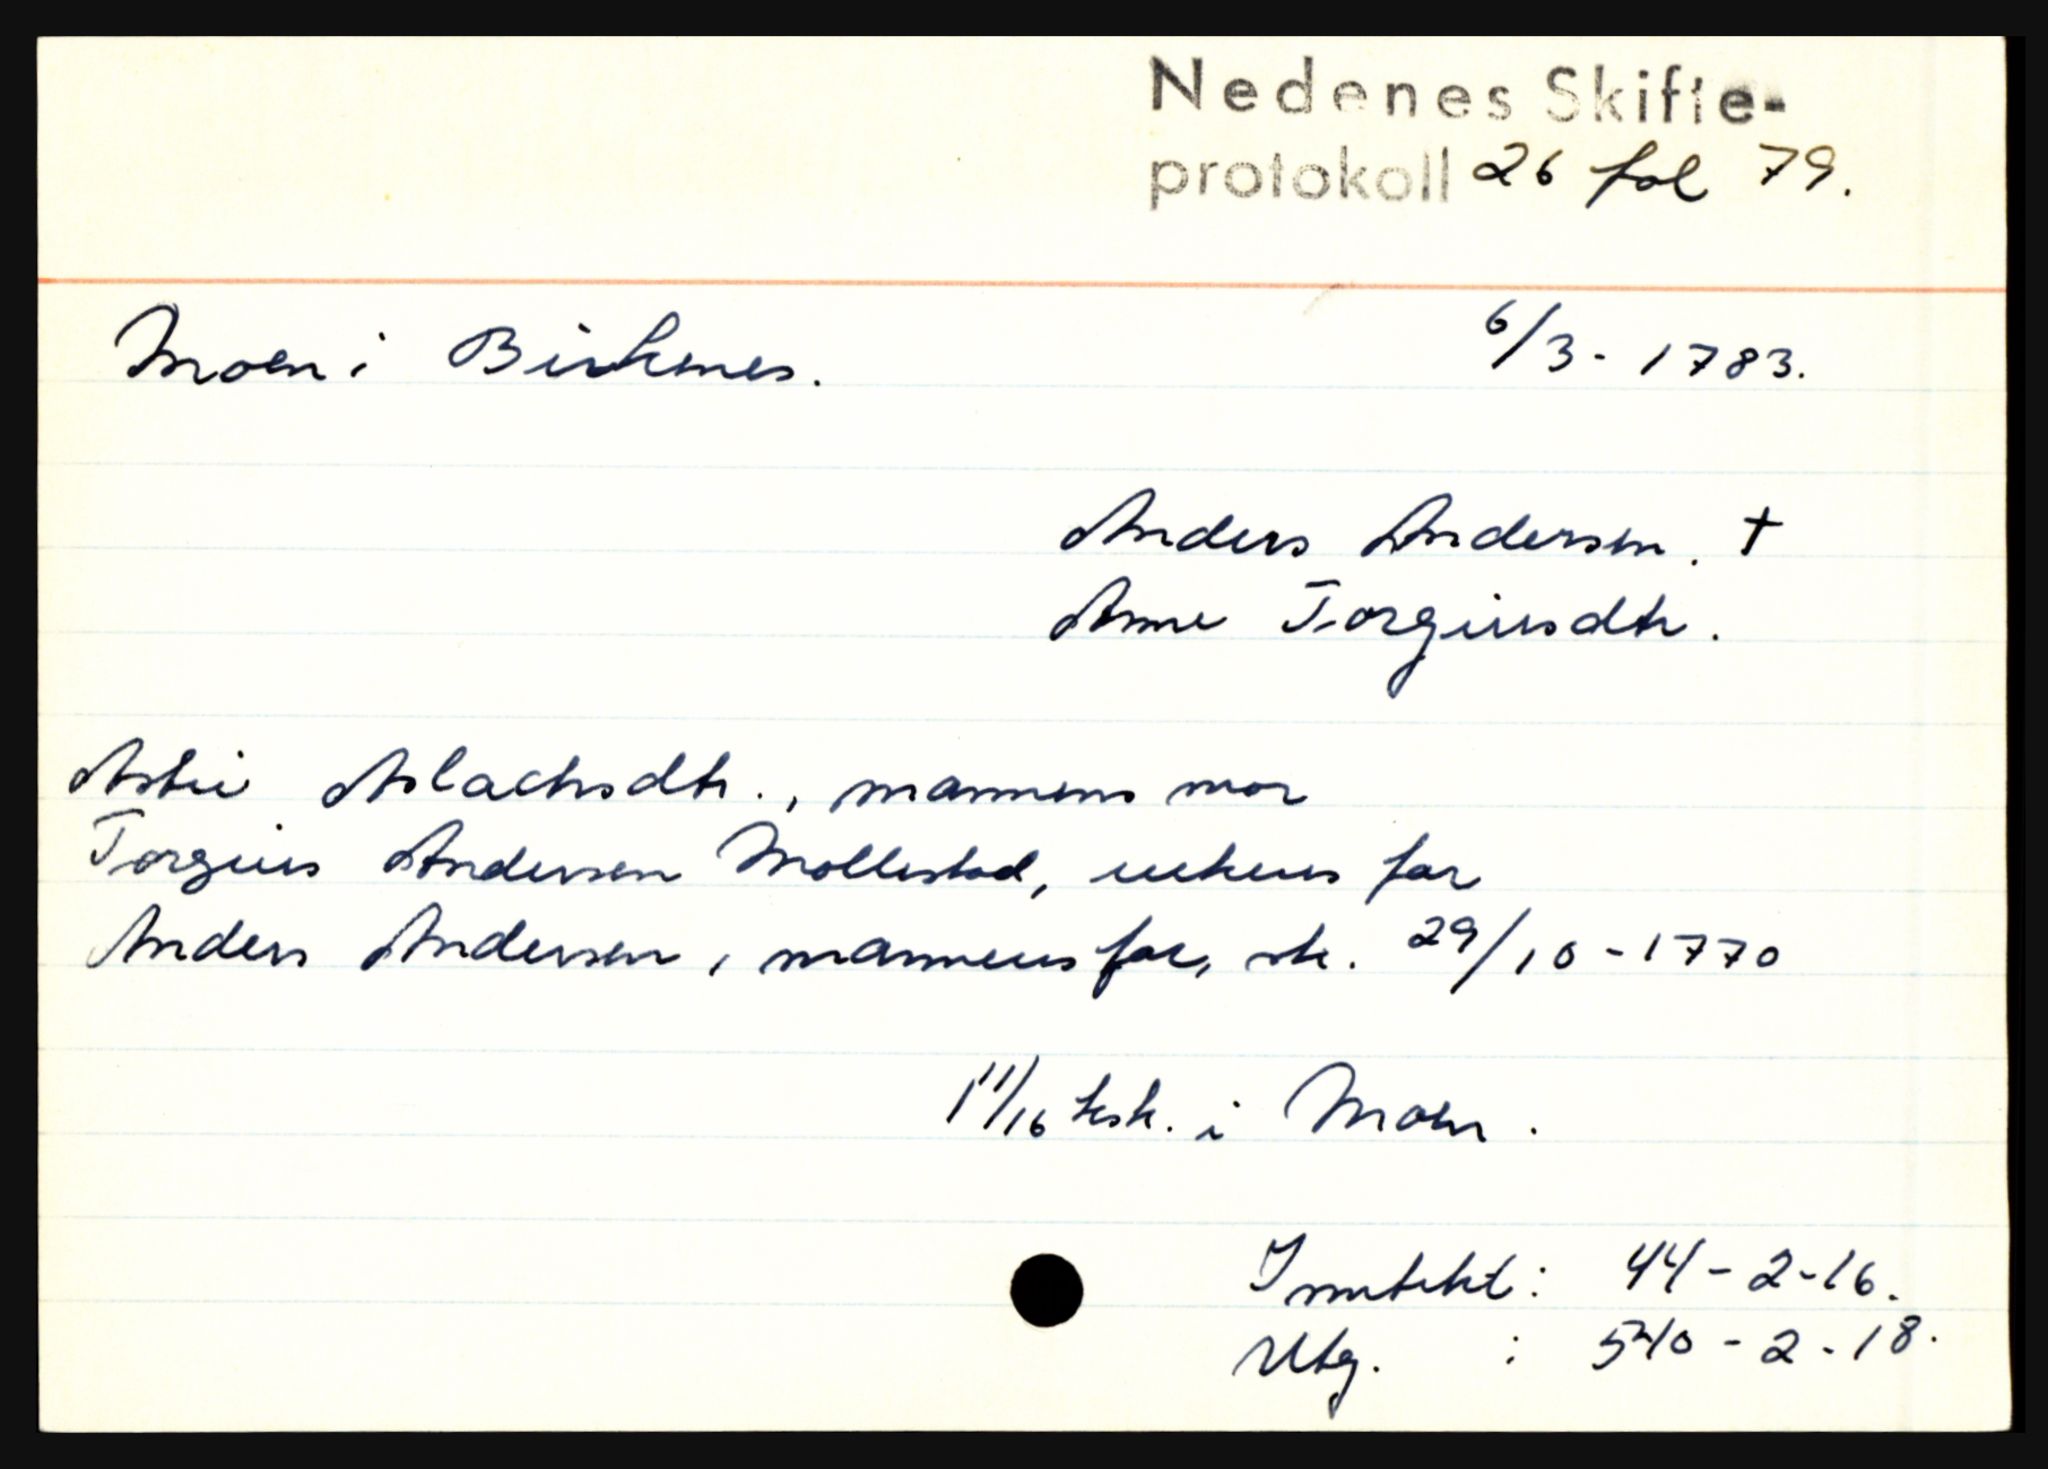 Nedenes Skifte-
protokoll 26 fol 79.
Moen i Birkenes. 6/3 - 1783.
Anders Andersen. †
Anne Torgiusdtr.
Aslachsdtr., mannens mor
Torgius Andersen Mollestad, enkens far
Anders Andersen, mannens far, sk. 29/10 - 1770
1 11/16 ksk. i Moen.
Inntekt: 44 - 2 - 16.
Utg. : 540 - 2 - 18.